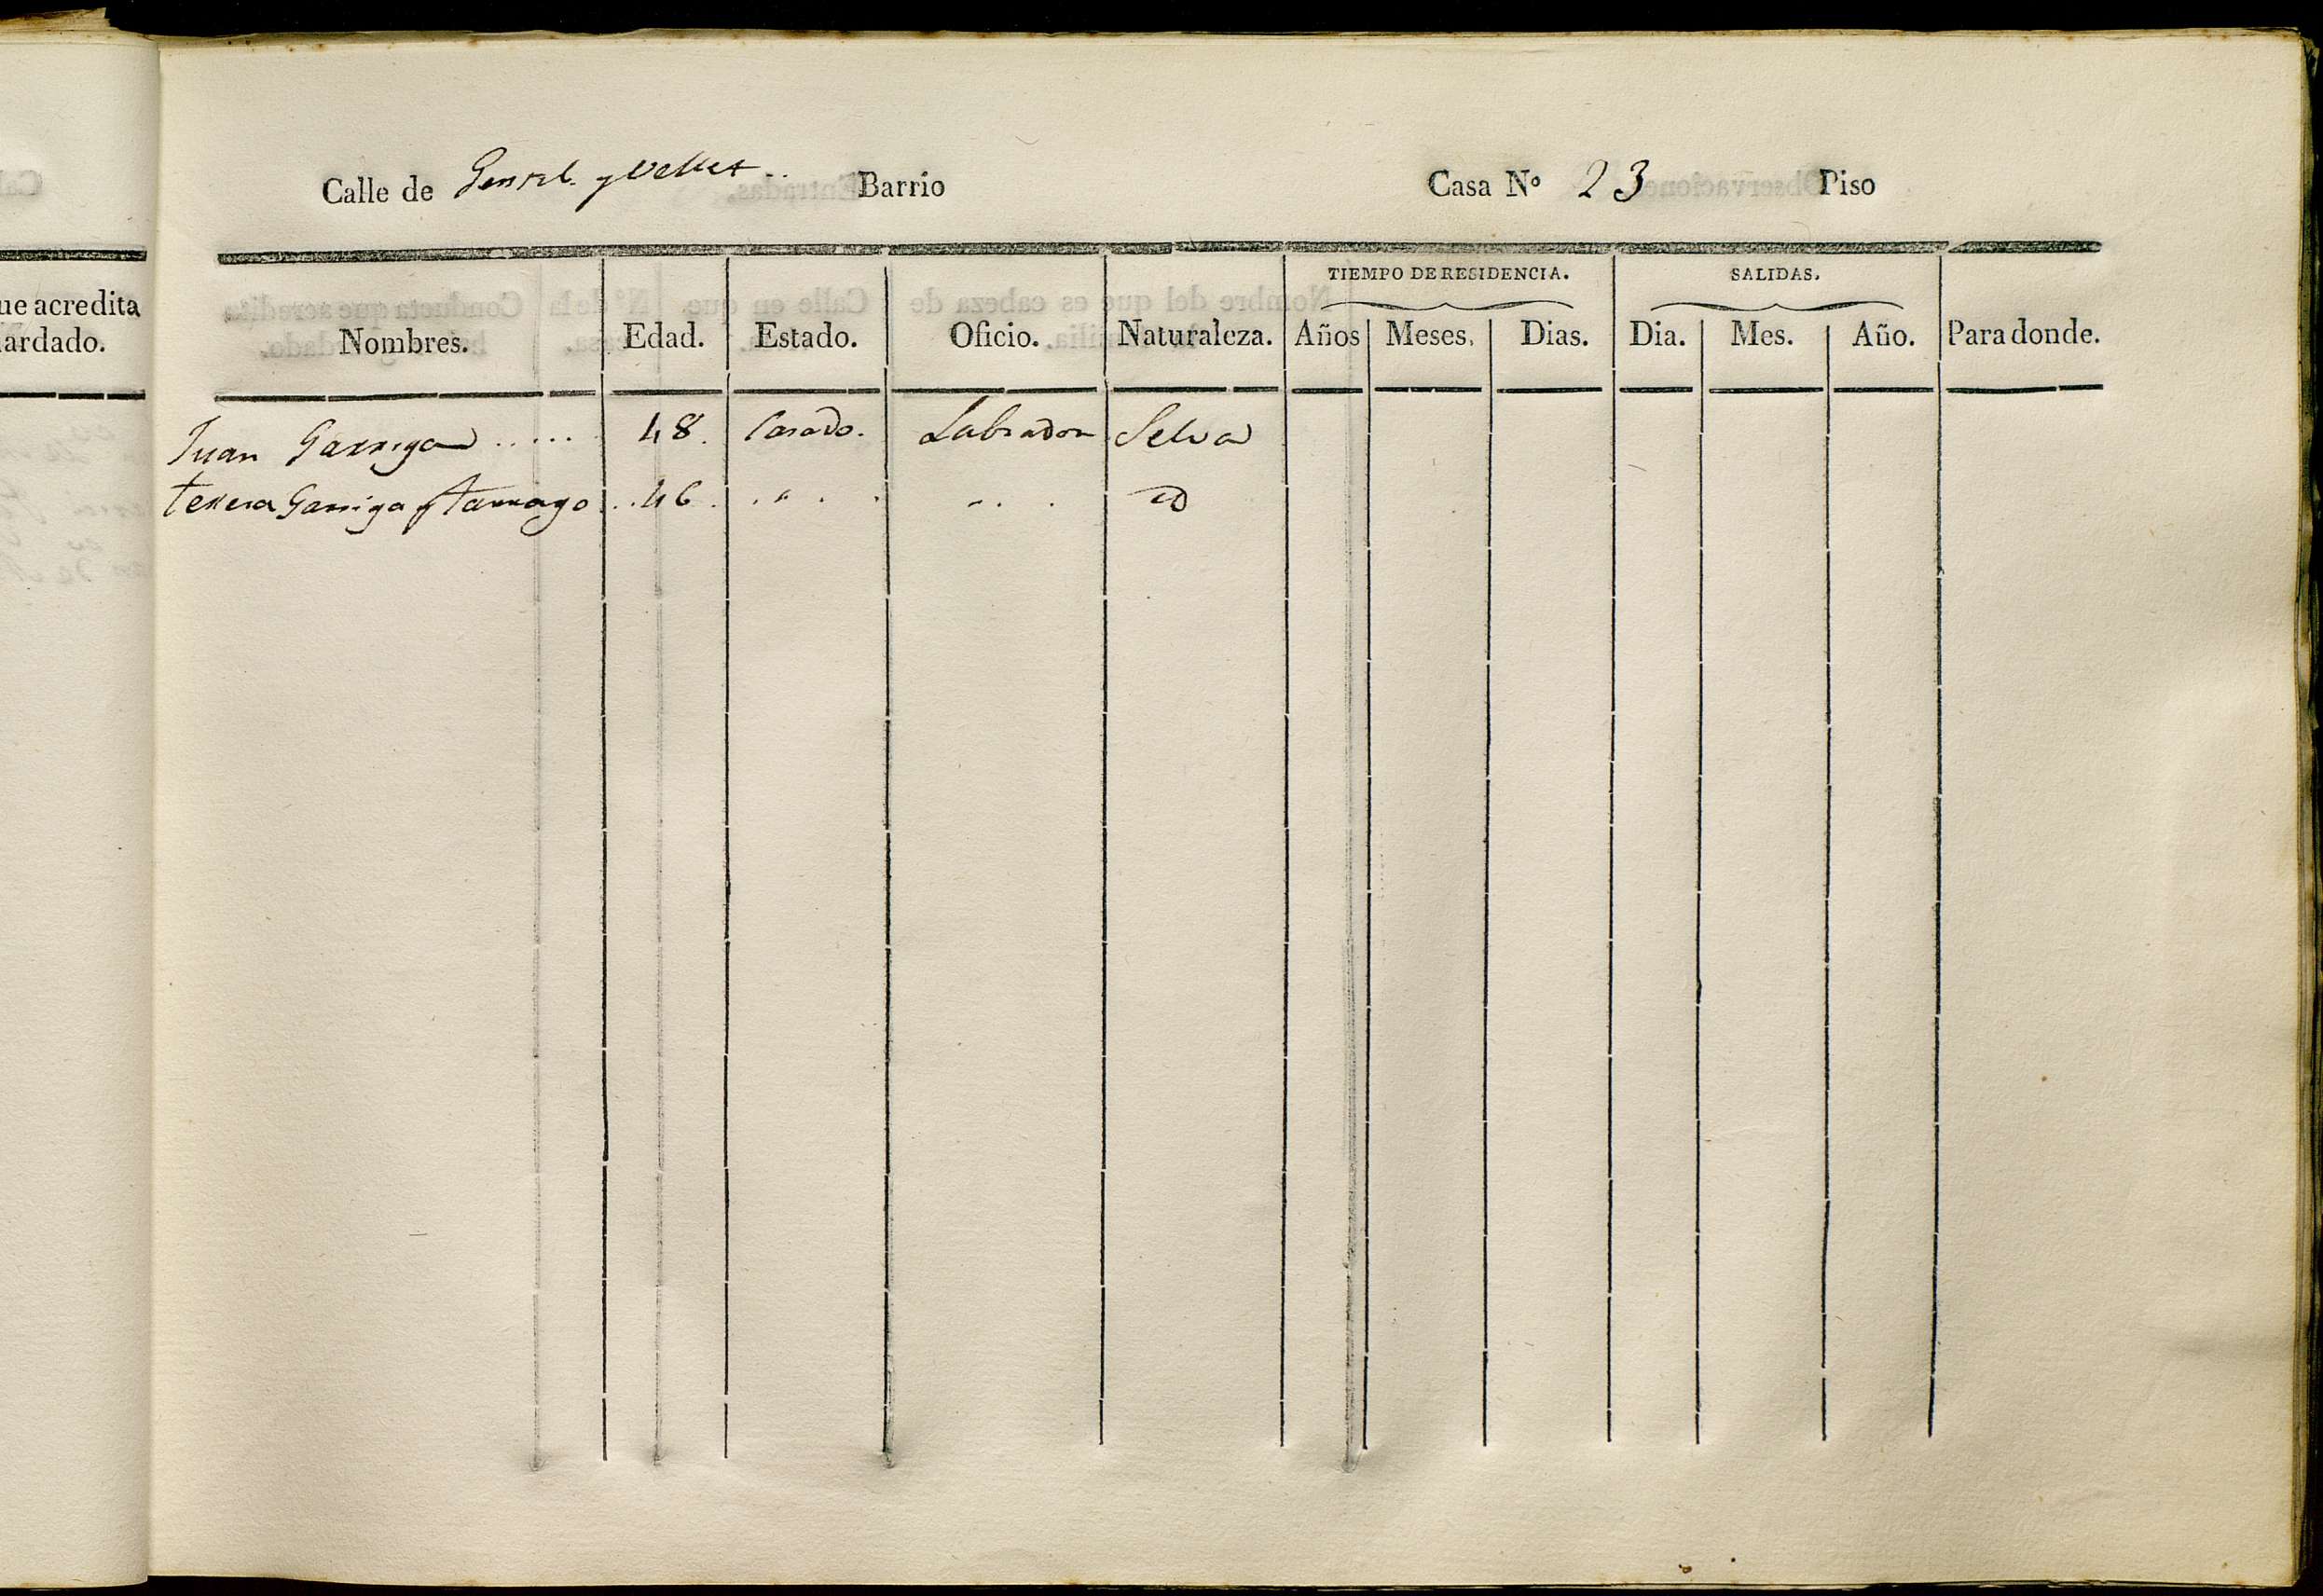 ue acredita
ardado.
Calle de y Vellet.. Barrio Casa Nº 23 Piso
TIEMPO DE RESIDENCIA. SALIDAS.
Nombres. Edad. Estado. Oficio. Naturaleza. Años Meses. Dias. Dia. Mes. Año. Para donde.
Juan Garriga ..... 48. Casado. Labrador Selva
Teresa Garriga y Tarrago . . 46 . . " . . - . . ID